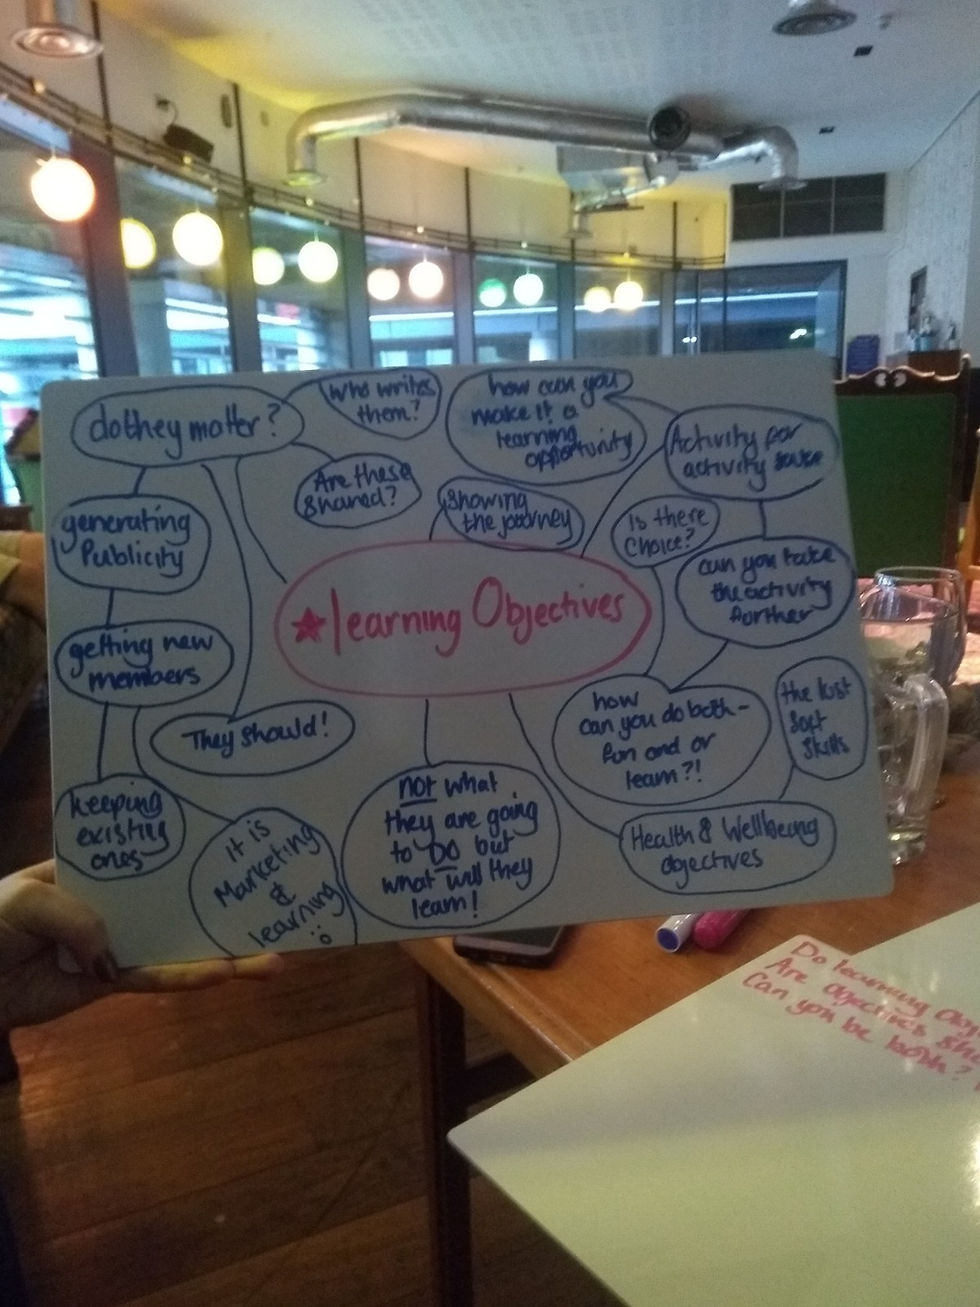 do they matter?
who writes
them?
Are these
shared?
how can you
make it a
learning
opportunity
Activity for
activity sake
showing
the journey
Is there
choice?
can you take
the activity
further
generating
Publicity
getting new
members
learning Objectives
They should!
how
can you do both -
fun and or
learn?!
the lost
soft
skills
keeping
existing
ones
it is
Marketing
&
learning
not what
they are going
to DO but
what will they
learn!
Health & Wellbeing
objectives
Do learning
Are objectives
Can you be both?